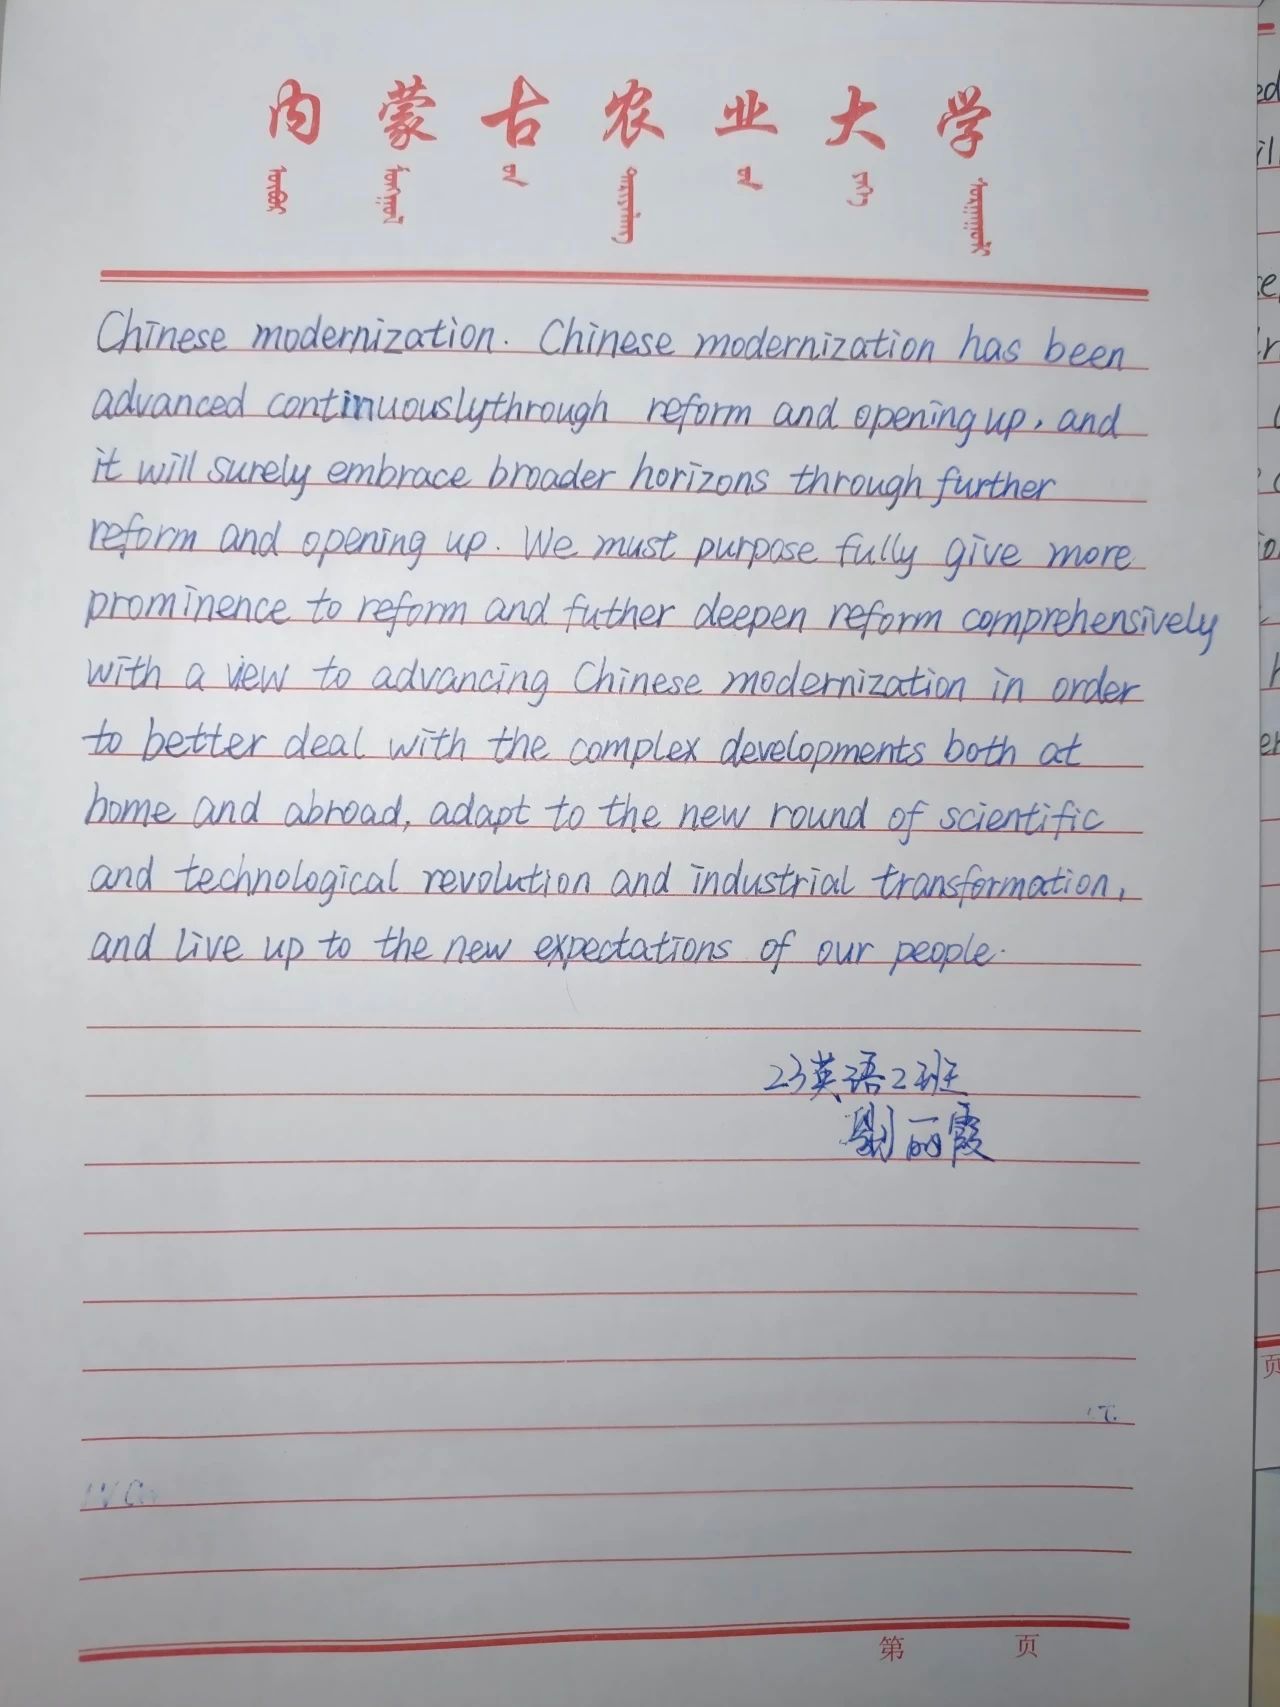 内蒙古农业大学
Chinese modernization. Chinese modernization has been
advanced continuouslythrough reform and opening up, and
it will surely embrace broader horizons through further
reform and opening up. We must purpose fully give more
prominence to reform and futher deepen reform comprehensively
with a view to advancing Chinese modernization in order
to better deal with the complex developments both at
home and abroad, adapt to the new round of scientific
and technological revolution and industrial transformation,
and live up to the new expectations of our people.
23英语2班
丽霞
第 页
页